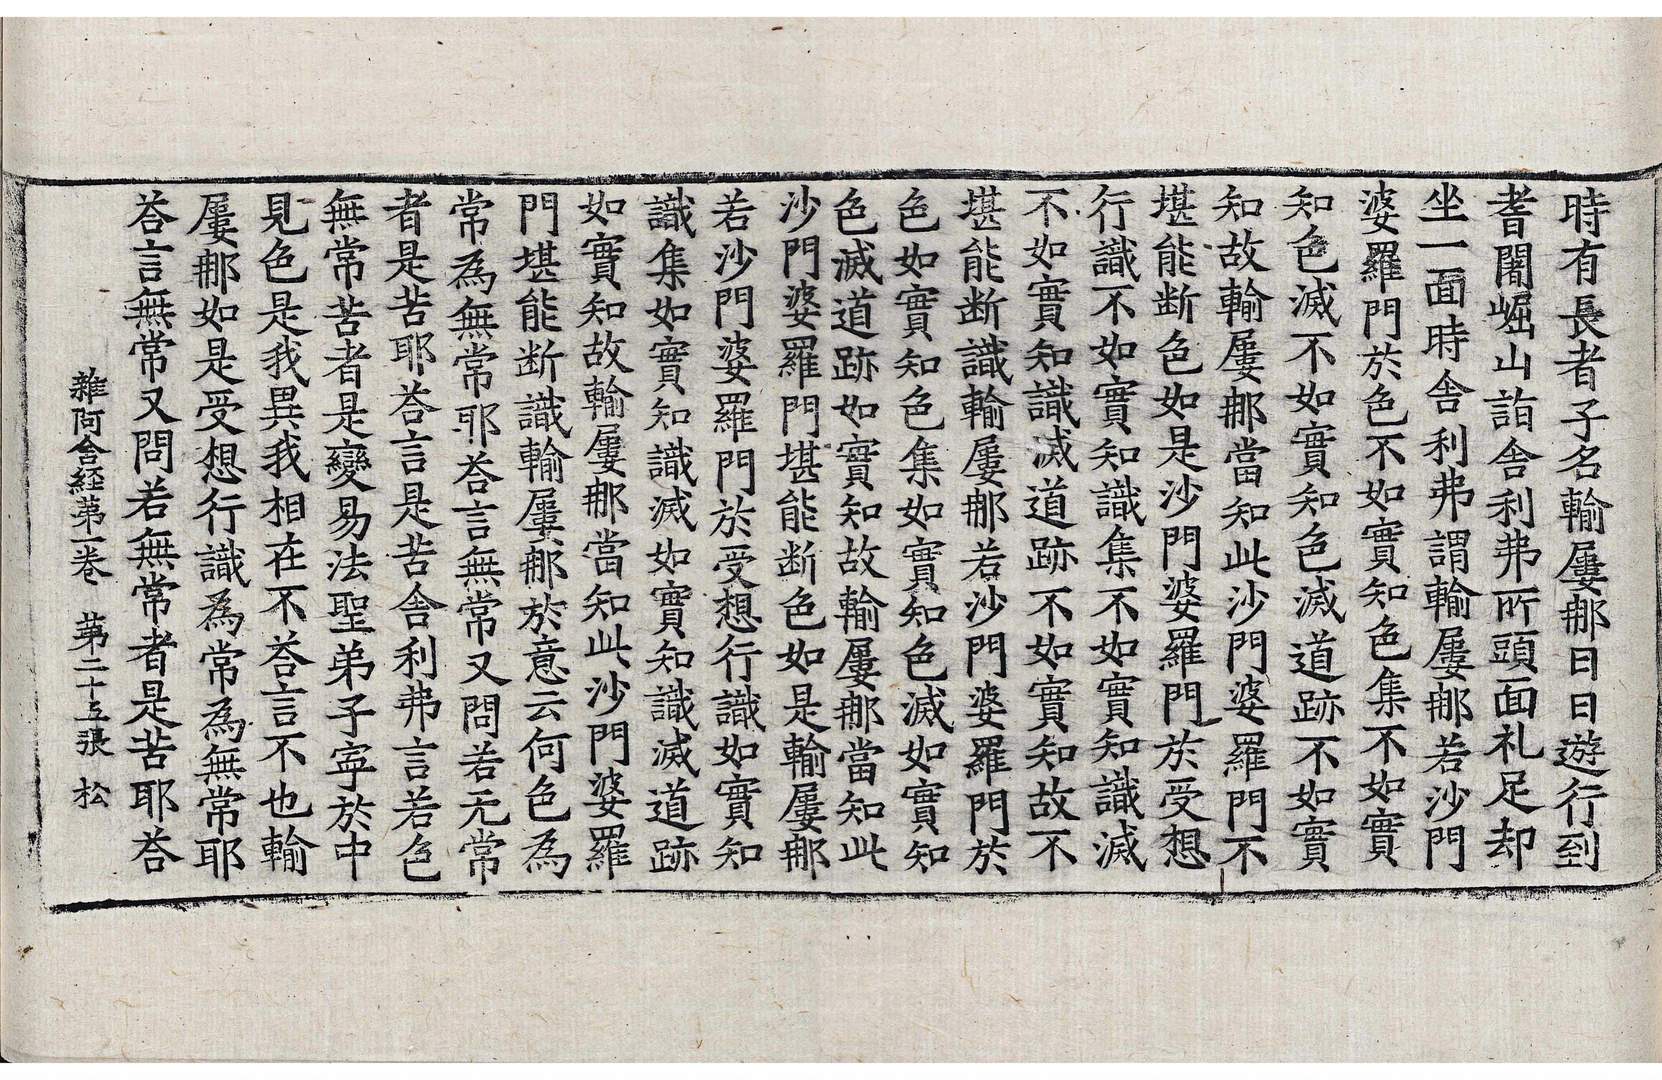 時有長者子名輸屢那日日遊行到
耆闍崛山詣舍利弗所頭面礼足却
坐一面時舍利弗謂輸屢那若沙門
婆羅門於色不如實知色集不如實
知色滅不如實知色滅道跡不如實
知故輸屢那當知此沙門婆羅門不
堪能断色如是沙門婆羅門於受想
行識不如實知識集不如實知識滅
不如實知識滅道跡不如實知故不
堪能断識輸屢那若沙門婆羅門於
色如實知色集如實知色滅如實知
色滅道跡如實知故輸屢那當知此
沙門婆羅門堪能断色如是輸屢那
若沙門婆羅門於受想行識如實知
識集如實知識滅如實知識滅道跡
如實知故輸屢那當知此沙門婆羅
門堪能断識輸屢那於意云何色為
常為無常耶荅言無常又問若无常
者是苦耶荅言是苦舍利弗言若色
無常苦者是變易法聖弟子寧於中
見色是我異我相在不荅言不也輸
屢那如是受想行識為常為無常耶
荅言無常又問若無常者是苦耶荅
雜阿含経苐一卷 苐二十五張 松